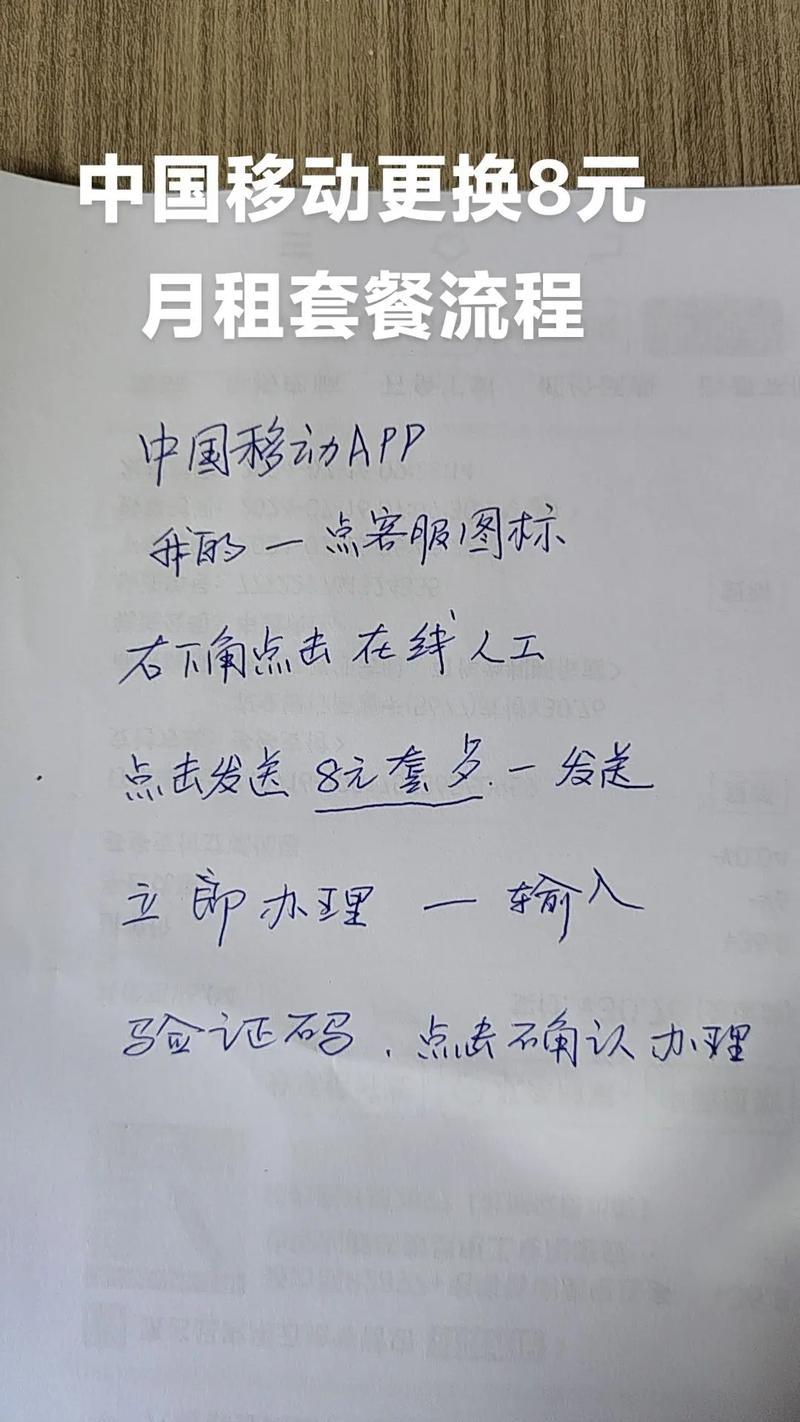 中国移动更换8元
月租套餐流程
中国移动APP
我的一点客服图标
右下角点击在线人工
点击发送 8元套歺一发送
立即办理 一 输入
验证码．点击确认办理